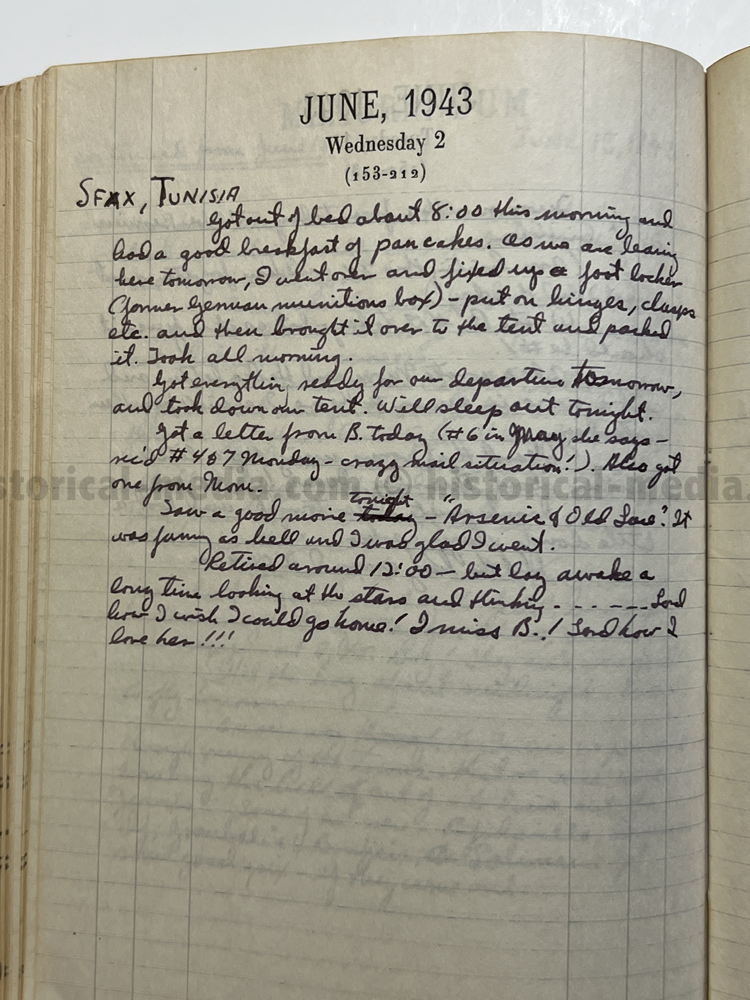 JUNE, 1943
Wednesday 2
(153-212)
SFAX, TUNISIA
Got out of bed about 8:00 this morning and
had a good breakfast of pancakes. As we are leaving
here tomorrow, I went over and fixed up a foot locker
(former German munitions box) - put on hinges, clasps
etc. and then brought it over to the tent and packed
it. Took all morning.
Got everything ready for our departure tomorrow,
and took down our tent. Will sleep out tonight.
Got a letter from B. today (#6 in May she says -
rec'd #4&7 Monday - crazy mail situation!). Also got
one from Mom.
Saw a good movie today tonight - "Arsenic & Old Lace". It
was funny as hell and I was glad I went.
Retired around 12:00 - but lay awake a
long time looking at the stars and thinking. . . . --- Lord
how I wish I could go home! I miss B..! Lord how I
love her!!!
historical-media.com © historical-media.